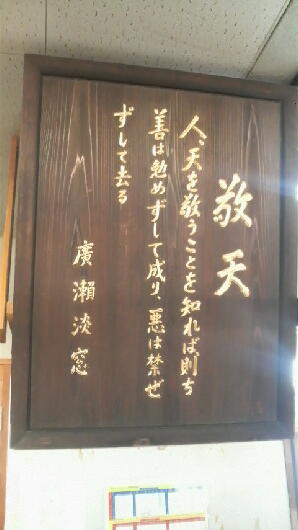 敬天
人、天を敬うことを知れば則ち
善は勉めずして成り、悪は禁ぜ
ずして去る
廣瀬淡窓